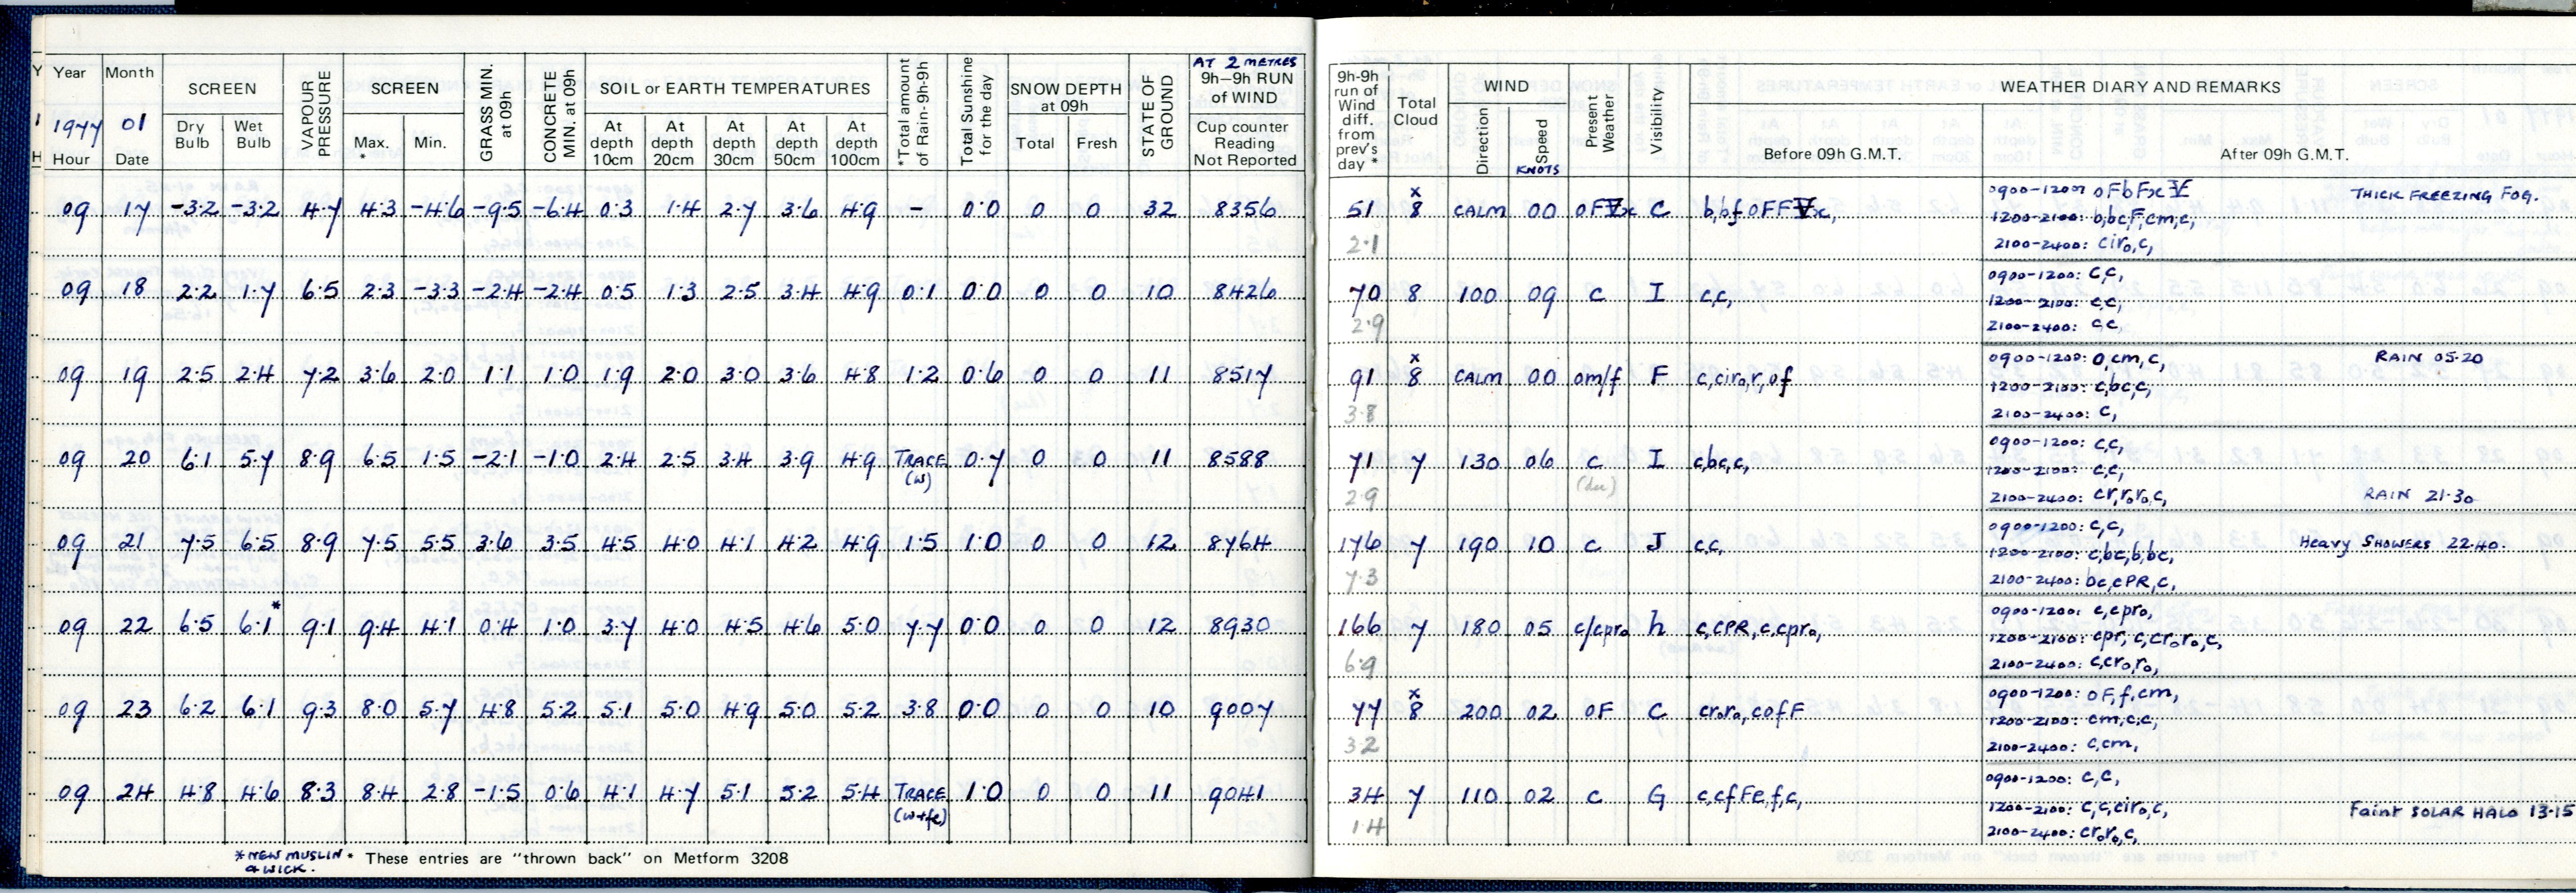 AT 2 METRES
Y Year Month SCREEN VAPOUR PRESSURE SCREEN GRASS MIN. at 09h CONCRETE MIN. at 09h SOIL or EARTH TEMPERATURES *Total amount of Rain-9h-9h Total Sunshine for the day SNOW DEPTH at 09h STATE OF GROUND 9h–9h RUN of WIND
1 1977 01 Dry Bulb Wet Bulb Max. * Min. At depth 10cm At depth 20cm At depth 30cm At depth 50cm At depth 100cm Total Fresh Cup counter Reading Not Reported
H Hour Date
09 17 -3.2 -3.2 4.7 4.3 -4.6 -9.5 -6.4 0.3 1.4 2.7 3.6 4.9 - 0.0 0 0 32 8356
09 18 2.2 1.7 6.5 2.3 -3.3 -2.4 -2.4 0.5 1.3 2.5 3.4 4.9 0.1 0.0 0 0 10 8426
09 19 2.5 2.4 7.2 3.6 2.0 1.1 1.0 1.9 2.0 3.0 3.6 4.8 1.2 0.6 0 0 11 8517
09 20 6.1 5.7 8.9 6.5 1.5 -2.1 -1.0 2.4 2.5 3.4 3.9 4.9 TRACE (w) 0.7 0 0 11 8588
09 21 7.5 6.5 8.9 7.5 5.5 3.6 3.5 4.5 4.0 4.1 4.2 4.9 1.5 1.0 0 0 12 8764
09 22 6.5 6.1* 9.1 9.4 4.1 0.4 1.0 3.7 4.0 4.5 4.6 5.0 7.7 0.0 0 0 12 8930
09 23 6.2 6.1 9.3 8.0 5.7 4.8 5.2 5.1 5.0 4.9 5.0 5.2 3.8 0.0 0 0 10 9007
09 24 4.8 4.6 8.3 8.4 2.8 -1.5 0.6 4.1 4.7 5.1 5.2 5.4 TRACE (w+fe) 1.0 0 0 11 9041
*NEW MUSLIN & WICK.
* These entries are "thrown back" on Metform 3208
9h-9h run of Wind diff. from prev's day * Total Cloud WIND Direction Speed KNOTS Present Weather Visibility WEATHER DIARY AND REMARKS
Before 09h G.M.T. After 09h G.M.T.
51 x 8 CALM 00 C 0900-1200 THICK FREEZING FOG.
1200-2100: b,bcF,cm,c,
2.1 2100-2400: ciro,c,
0900-1200: c,c,
70 8 100 09 c I c,c, 1200-2100: c,c,
2.9 2100-2400: c,c,
x 0900-1200: o,cm,c, RAIN 05.20
91 8 CALM 00 om/f F c,ciro,r,of 1200-2100: c,bc,c,
3.8 2100-2400: c,
0900-1200: c,c,
71 7 130 06 c I c,bc,c, 1200-2100: c,c,
2.9 (dew) 2100-2400: cr,roro,c, RAIN 21.30
0900-1200: c,c,
176 7 190 10 c J c,c, 1200-2100: c,bc,b,bc, Heavy SHOWERS 22.40.
7.3 2100-2400: bc,cPR,c,
0900-1200: c,cpro,
166 7 180 05 c/cpro h c,cPR,c,cpro, 1200-2100: cpr,c,croro,c,
6.9 2100-2400: c,croro,
x 0900-1200: oF,f,cm,
77 8 200 02 oF C croro,cofF 1200-2100: cm,c,c,
3.2 2100-2400: c,cm,
0900-1200: c,c,
34 7 110 02 c G c,cfFe,f,c, 1200-2100: c,c,ciro,c, Faint SOLAR HALO 13.15
1.4 2100-2400: croro,c,